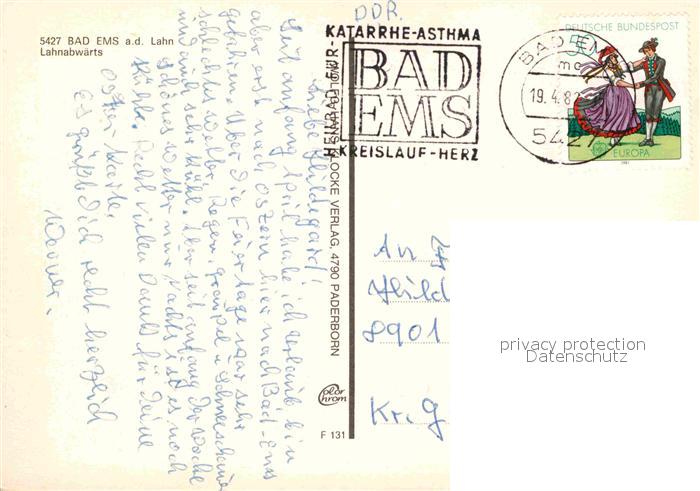 5427 BAD EMS a.d. Lahn
Lahnabwärts
DDR.
KATARRHE-ASTHMA
BAD
EMS
KREISLAUF-HERZ
BAD EMS
mo
19.4.82
5427
DEUTSCHE BUNDESPOST
EUROPA
Liebe Hildegard!
Seit anfang April habe ich Urlaub bin
aber erst nach Ostern hier nach Bad-Ems
gefahren. Über die Feiertage war sehr
schlechtes Wetter Regen, graupel u Schneeschauer
und auch sehr kühl. Aber seit anfang der Woche
schönes Wetter nur nachts ist es noch
kühl. Recht vielen Dank für Deine
Oster Karte.
Es grüßt Dich recht herzlich
Werner.
LOCKE VERLAG, 4790 PADERBORN
Color
Chrom
F 131
An
Hild
8901
Kr. G
privacy protection
Datenschutz